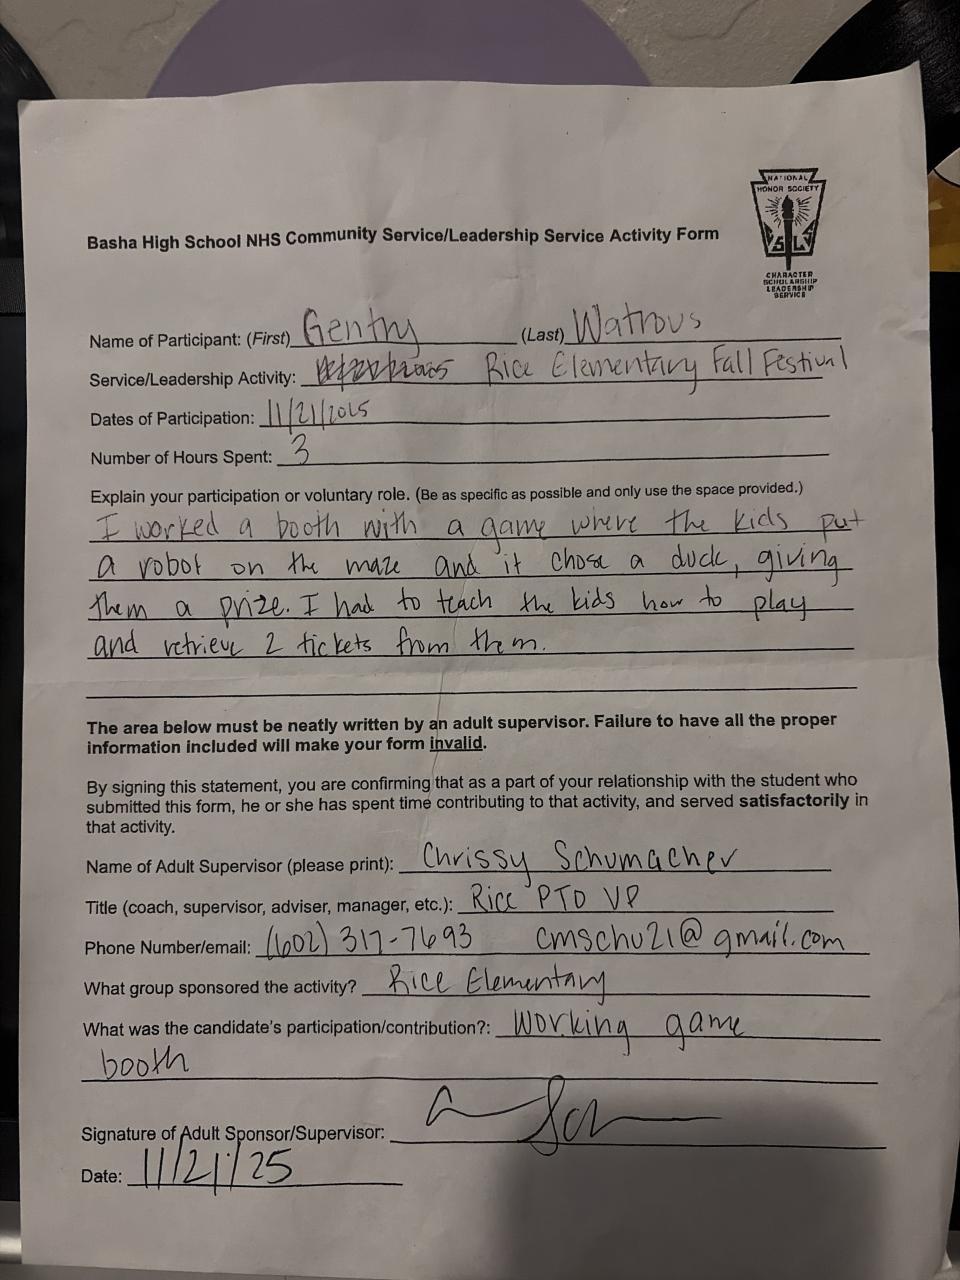 NATIONAL
HONOR SOCIETY
S L
CHARACTER
SCHOLARSHIP
LEADERSHIP
SERVICE
Basha High School NHS Community Service/Leadership Service Activity Form
Name of Participant: (First) Gentry (Last) Watrous
Service/Leadership Activity: Rice Elementary Fall Festival
Dates of Participation: 11/21/2025
Number of Hours Spent: 3
Explain your participation or voluntary role. (Be as specific as possible and only use the space provided.)
I worked a booth with a game where the kids put
a robot on the maze and it chose a duck, giving
them a prize. I had to teach the kids how to play
and retrieve 2 tickets from them.
The area below must be neatly written by an adult supervisor. Failure to have all the proper
information included will make your form invalid.
By signing this statement, you are confirming that as a part of your relationship with the student who
submitted this form, he or she has spent time contributing to that activity, and served satisfactorily in
that activity.
Name of Adult Supervisor (please print): Chrissy Schumacher
Title (coach, supervisor, adviser, manager, etc.): Rice PTO VP
Phone Number/email: (602) 317-7693 cmschu21@gmail.com
What group sponsored the activity? Rice Elementary
What was the candidate's participation/contribution?: Working game
booth
Signature of Adult Sponsor/Supervisor:
Date: 11/21/25